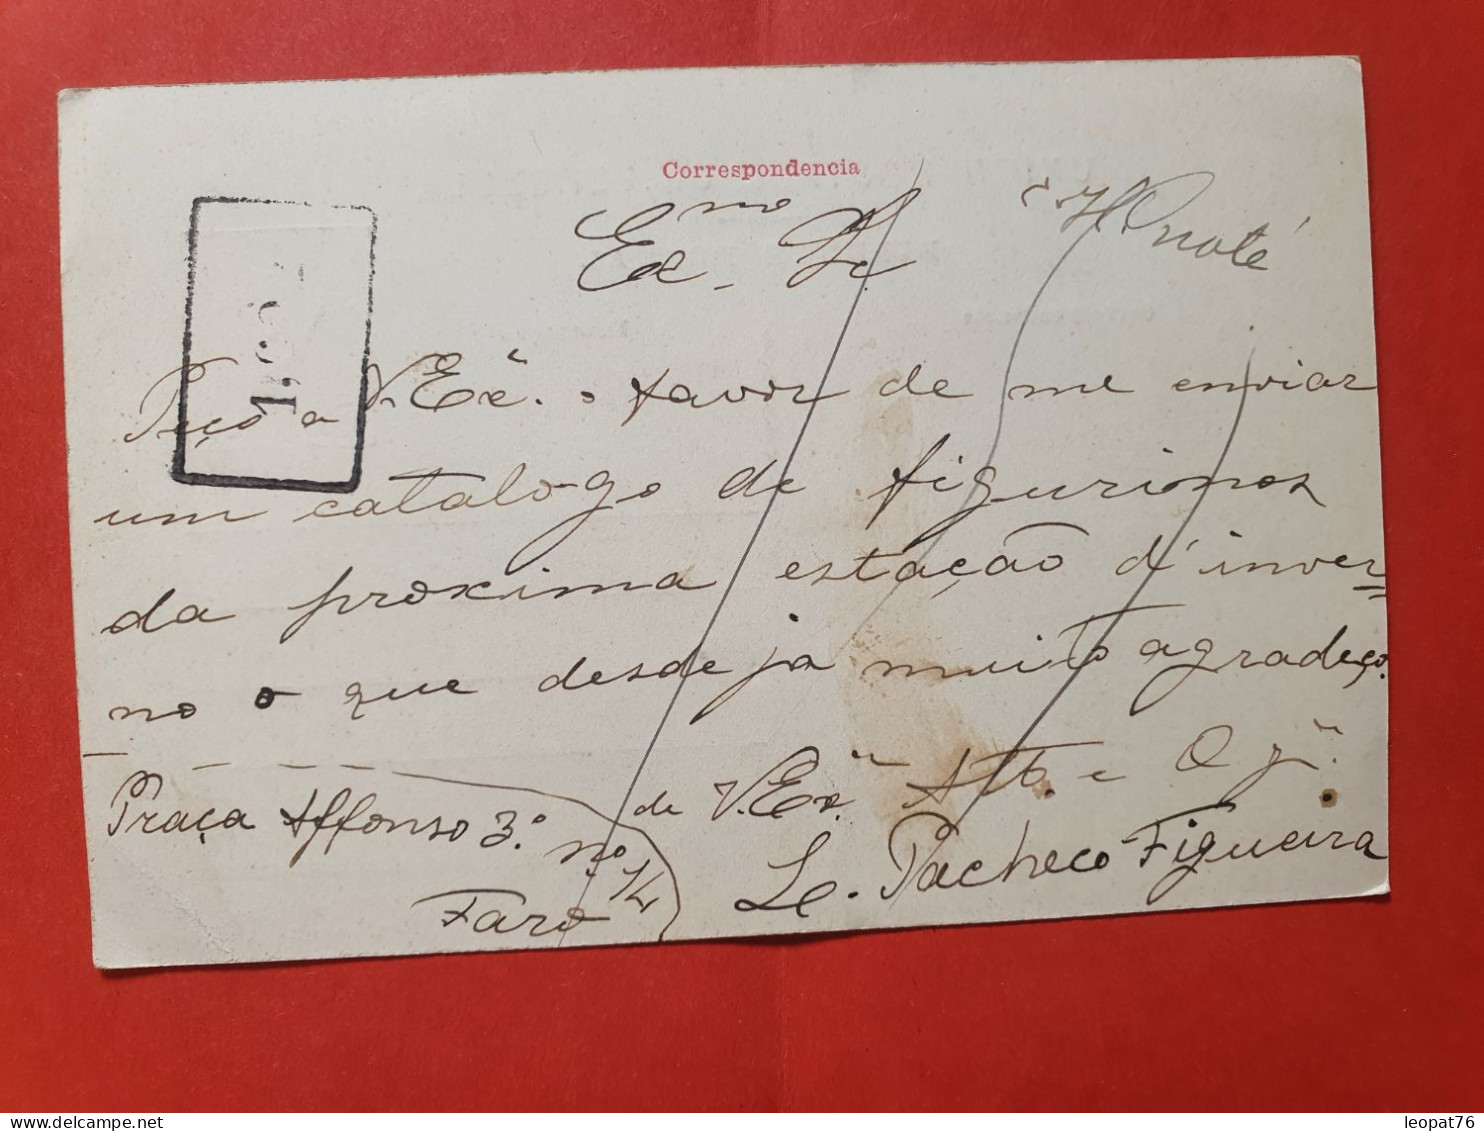 Correspondencia
Ex.mo Sr.
Peço a V. Exª. o favor de me enviar
um catalogo de figurinos
da proxima estação d'inver
no o que desde já muito agradeço.
de V. Exª. Att.º e
Praça Affonso 3.º
n.º 14
Faro
L. Pacheco Figueira
leopat76